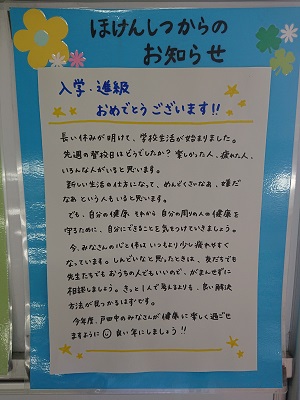 ほけんしつからの
お知らせ
入学・進級
おめでとうございます!!
長い休みが明けて、学校生活が始まりました。
先週の登校日はどうでしたか？楽しかった人、疲れた人、
いろんな人がいると思います。
新しい生活の仕方になって、めんどくさいなあ、嫌だ
なあ という人もいると思います。
でも、自分の健康 それから 自分の周りの人の健康を
守るために、自分にできることを気をつけていきましょう。
今、みなさんの心と体は いつもより少し疲れやすく
なっています。しんどいなと思ったときは、友だちでも
先生たちでも おうちの人でもいいので、がまんせずに
相談しましょう。きっと1人で考えるよりも、良い解決
方法が見つかるはずです。
今年度、戸田中のみなさんが健康に楽しく過ごせ
ますように 良い年にしましょう!!